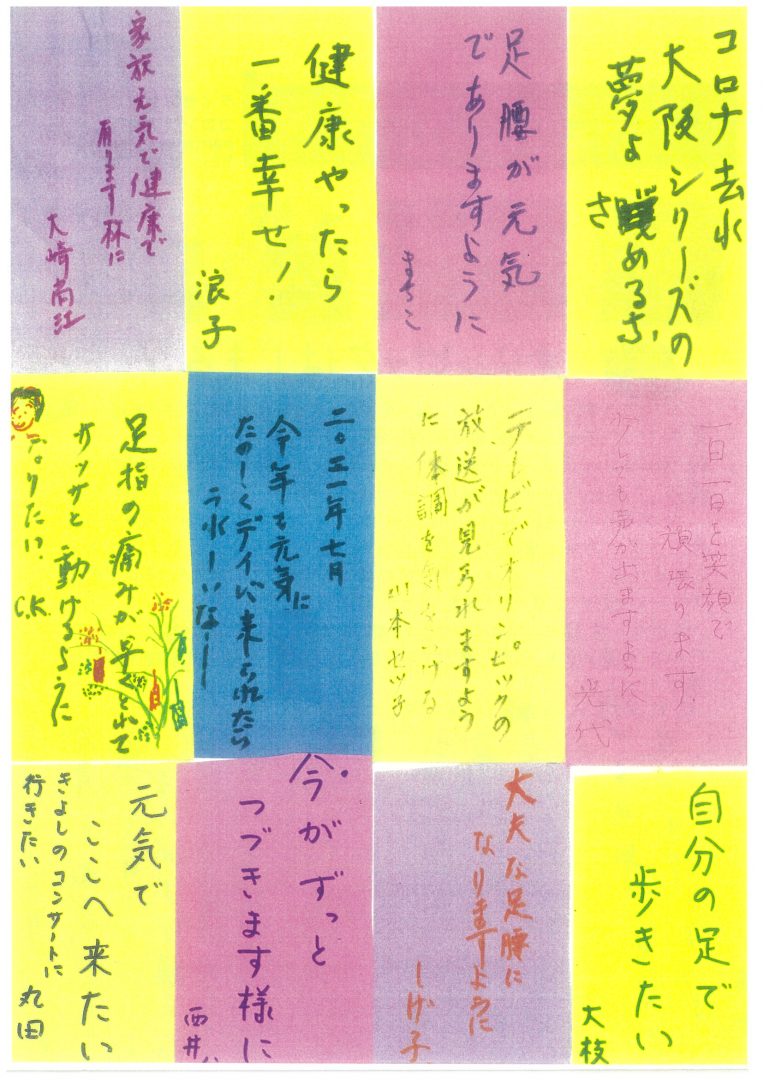 コロナ去れ
大阪シリーズの
夢よ
さめるな
足腰が元気
でありますように
まちこ
健康やったら
一番幸せ!
浪子
家族元気で健康で
有ります様に
大崎尚江
一日一日を笑顔で
頑張ります。
光代
テレビでオリンピックの
放送が見られますよう
に体調を気をつける
川本セツ子
二〇二一年七月
今年も元気に
たのしくデイに来られたら
うれしいなー
足指の痛みが早くとれて
サッサと動けるように
なりたい。
C.K.
自分の足で
歩きたい
大枝
丈夫な足腰に
なりますように
しげ子
今がずっと
つづきます様に
西井
元気で
ここへ来たい
きよしのコンサートに
行きたい
丸田